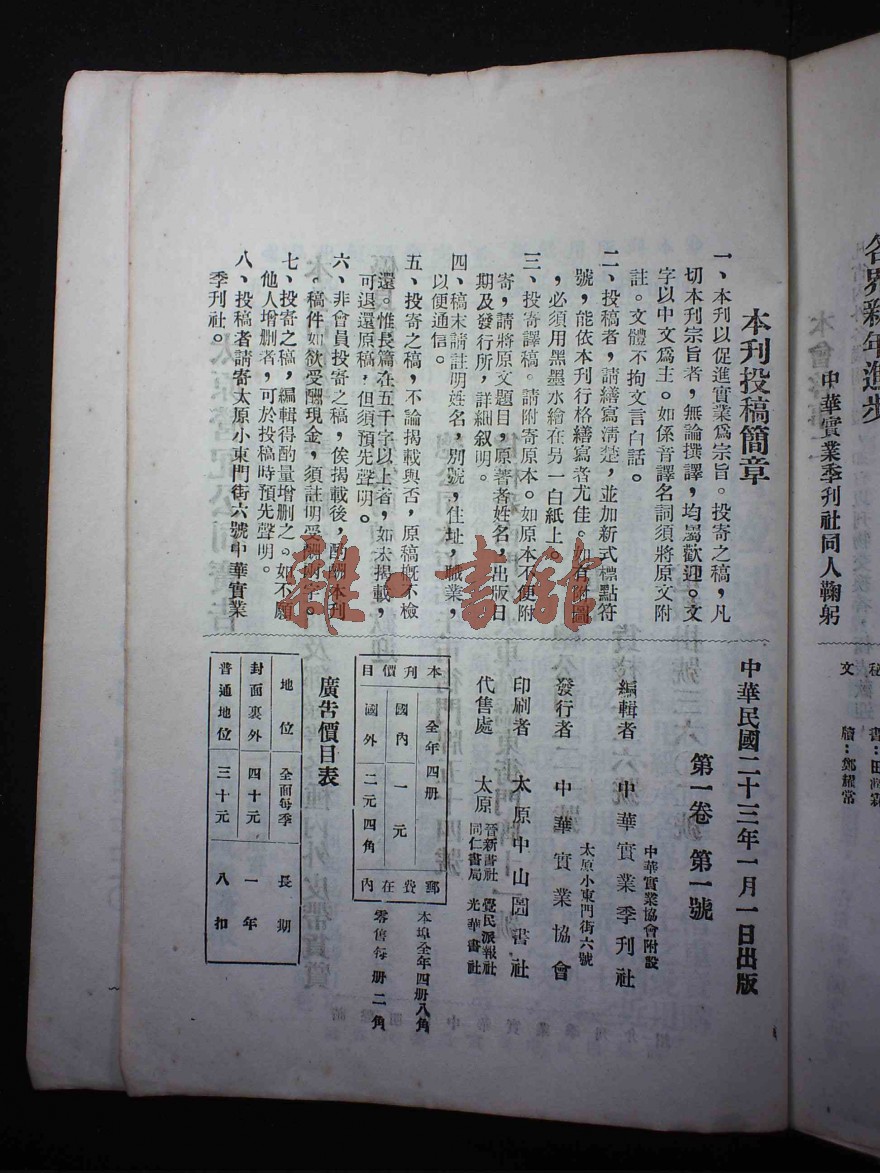 各界新年進步
中華實業季刊社同人鞠躬
文牘：鄭耀常
本刊投稿簡章
一、本刊以促進實業爲宗旨。投寄之稿，凡
切本刊宗旨者，無論撰譯，均屬歡迎。文
字以中文爲主。如係音譯名詞須將原文附
註。文體不拘文言白話。
二、投稿者，請繕寫清楚，並加新式標點符
號，能依本刊行格繕寫者尤佳。如有附圖
，必須用黑墨水繪在另一白紙上。
三、投寄譯稿。請附寄原本。如原本不便附
寄，請將原文題目，原著者姓名，出版日
期及發行所，詳細叙明。
四、稿末請註明姓名，別號，住址，職業，
以便通信。
五、投寄之稿，不論揭載與否，原稿概不檢
還。惟長篇在五千字以上者，如未揭載，
可退還原稿，但須預先聲明。
六、非會員投寄之稿，俟揭載後，酌酬本刊
。稿件如欲受酬現金，須註明受酬兩字。
七、投寄之稿，編輯得酌量增删之。如不願
他人增删者，可於投稿時預先聲明。
八、投稿者請寄太原小東門街六號中華實業
季刊社。
中華民國二十三年一月一日出版
第一卷 第一號
中華實業協會附設
編輯者 中華實業季刊社
太原小東門街六號
發行者 中華實業協會
印刷者 太原中山圖書社
代售處 太原 晉新書社 覺民派報社
同仁書局 光華書社
本刊價目
全年四册
國內 一元
國外 二元四角
郵費在內
本埠全年四册八角
零售每册二角
廣告價目表
地位 全面每季 長期
封面裏外 四十元 一年
普通地位 三十元 八扣
雜·書館